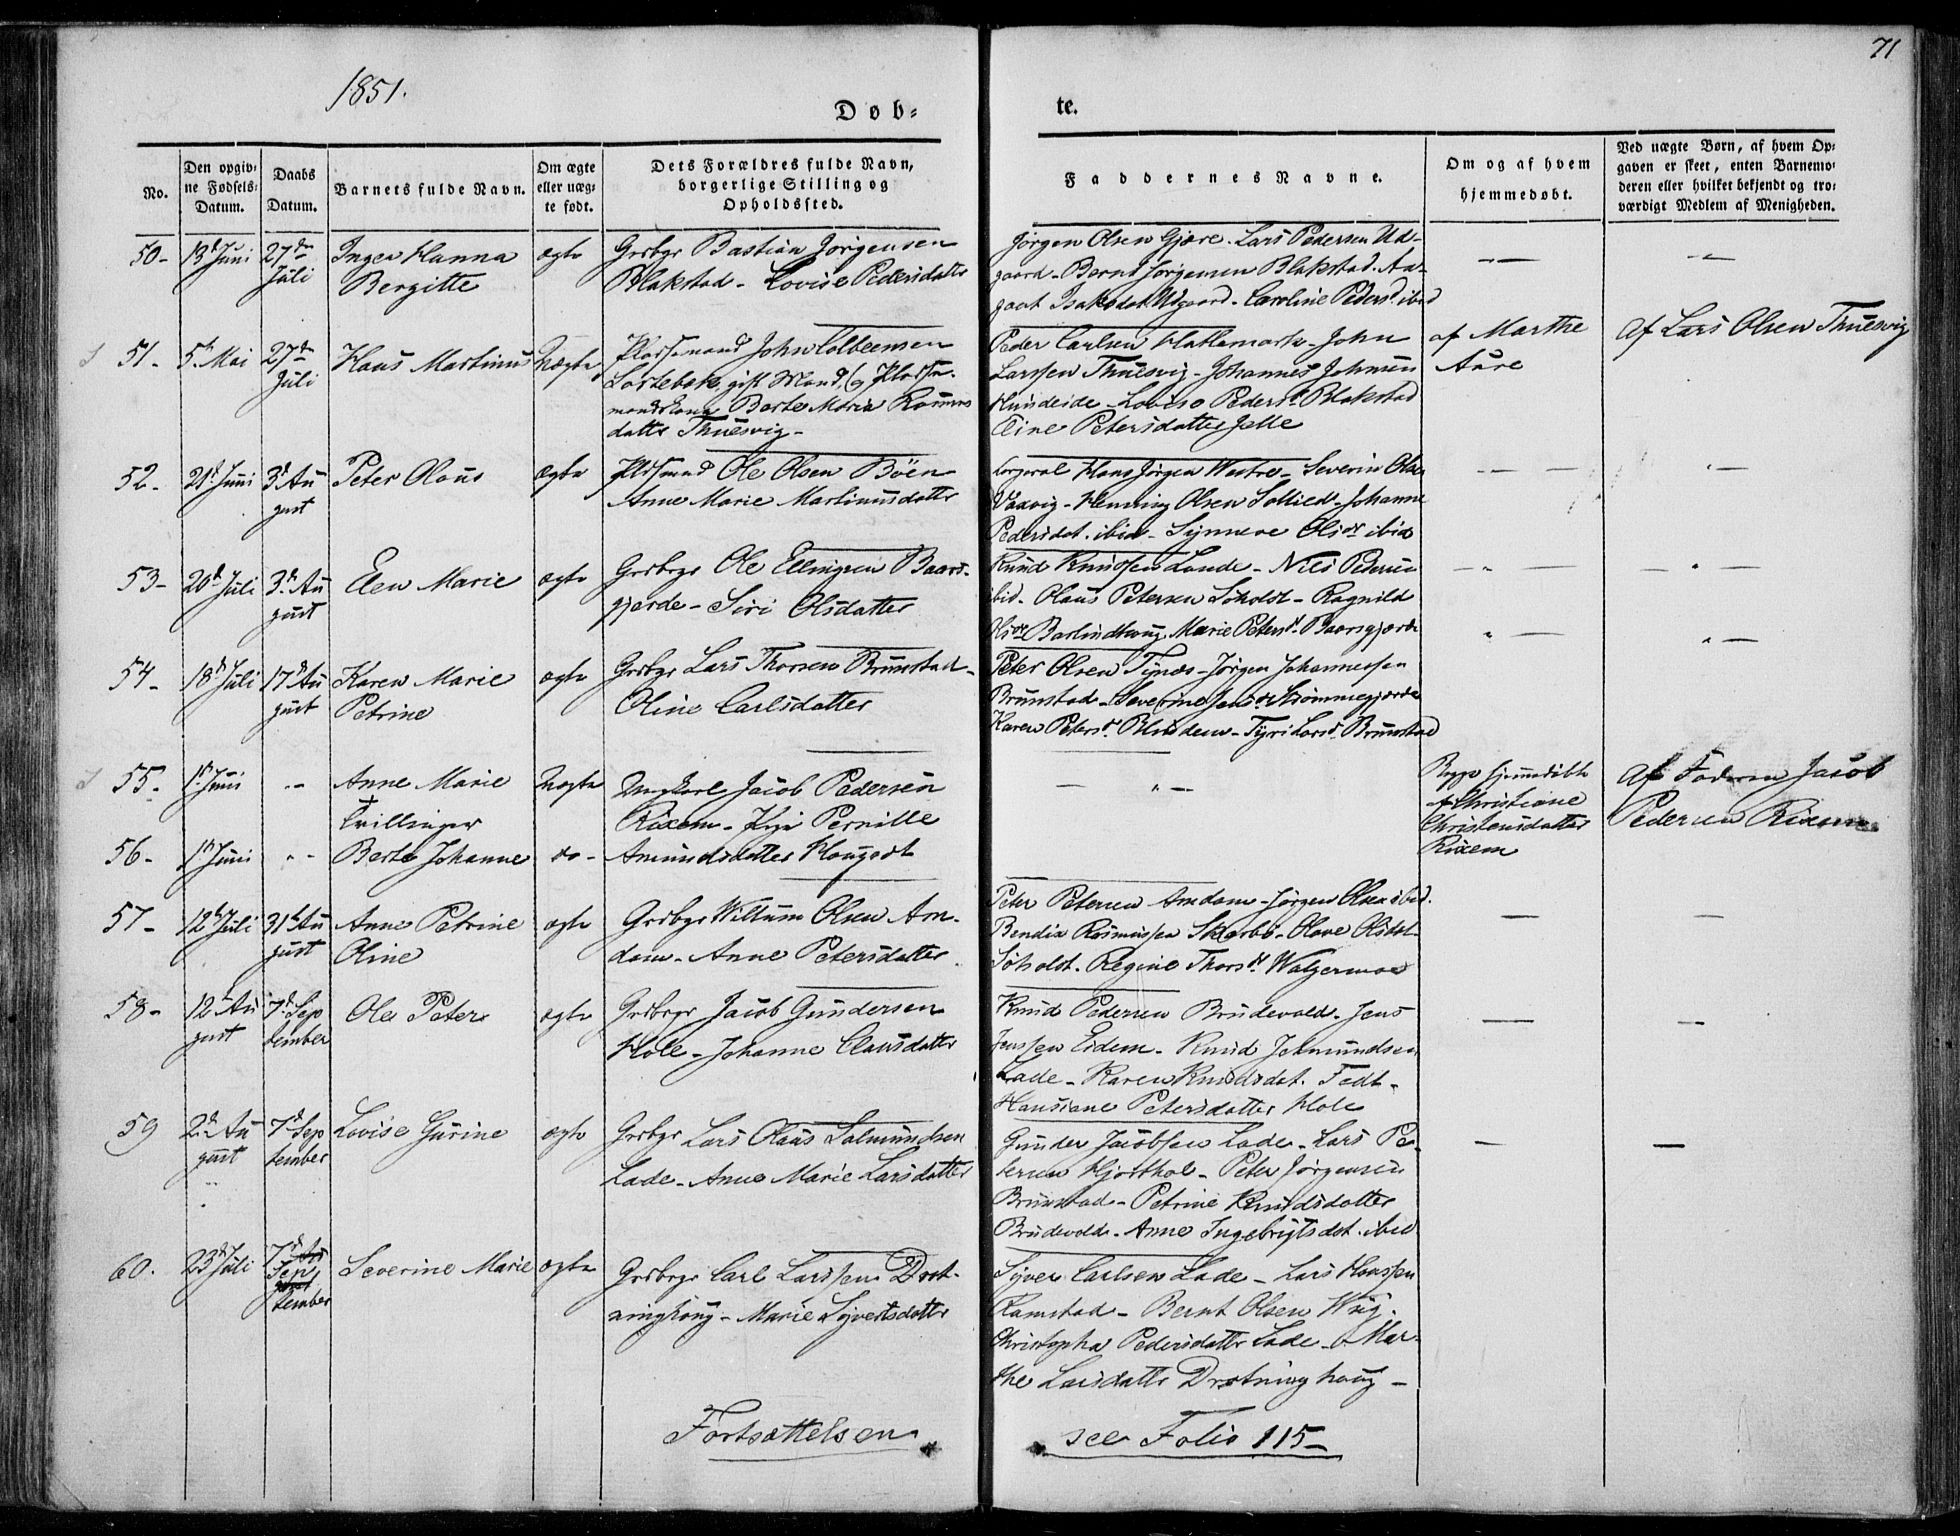 1851.
71
Døb=
te.
No.
Den opgiv=
ne Fødsels=
Datum.
Daabs
Datum.
Barnets fulde Navn.
Om ægte
eller uæg=
te født.
Dets Forældres fulde Navn,
borgerlige Stilling og
Opholdssted.
Faddernes Navne.
Om og af hvem
hjemmedøbt.
Ved uægte Børn, af hvem Op=
gaven er skeet, enten Barnemo=
deren eller hvilket bekjendt og tro=
værdigt Medlem af Menigheden.
50-
13d Juni
27de
Juli
Inger Hanna
Bergitte
ægte
Grdbgr Bastian Jørgensen
Blakstad - Lovise Pedersdatter
Jørgen Olsen Gjære. Lars Pedersen Ud-
gaard - Bernd Jørgensen Blakstad. Aa-
gaat Isaksdat. Udgaard - Caroline Pedersd. ibid
51-
5te Mai
27de
Juli
Hans Martinus
Uægte
Pladsemand John Colbeensen
gift Mand, og Pladse-
mandskone Berte Maria Rasmus
datter Thuesvig-
Peder Carlsen Hatlemark - John
Larssen Thuesvig - Johannes Johnsen
Hundeide - Lovise Pedersd. Blakstad
Eline Petersdatter Jelle
af Marthe
Aure
Af Lars Olsen Thuesvig
52-
21d Juni
3d Au
gust
Peter Olaus
ægte
Pladsmand Ole Olsen Böen
Anne Marie Martinusdatter
Corporal Hans Jørgen Westre - Severin Olsen
Vaxvig - Henning Olsen Sollied - Johanne
Pedersdat. ibid - Synneve Olsdr ibid
53-
20d Juli
3d Au
gust
Elen Marie
ægte
Grdbgr Ole Ellingsen Baars-
gjerde - Siri Olsdatter
Knud Knudssen Lande - Nils Pedersen
ibid - Olaus Petersen Söholdt - Ragnild
Olsdr Barlindhoug Marie Petersd. Baarsgjærde
54-
18d Juli
17d Au
gust
Karen Marie
Petrine
ægte
Grdbgr Lars Thorsen Brunstad-
Oline Carlsdatter
Peter Olsen Tynæs - Jørgen Johannessen
Brunstad - Severine Jensdr. Strömmegjerde
Karen Petersd. Blindem - Tyri Larsd. Brunstad
55-
1te Juni
Anne Marie
Tvillinger
Uægte
Ungkarl Jacob Pedersen
Rixem - Pernille
Begge hjemmedöbte
af Christiane
Christensdatter
Rixem
Af Faderen Jacob
Pedersen Rixem
56-
1te Juni
Berte Johanne
do-
Amundsdatter
57-
12te Juli
31te Au
gust
Anne Petrine
Oline
ægte
Grdbgr Willum Olsen Am-
dam - Anne Petersdatter
Peter Petersen Amdam - Jørgen Olsen ibid.
Bendix Rasmussen Skarbö - Olave Olsdat.
Söholdt. Regine Thorsdr.
58-
12te Au
gust
7d Sep
tember
Ole Peter
ægte
Grdbrgr Jacob Gundersen
Hole - Johanne Clausdatter
Knud Pedersen Brudevold. Jens
Jenssen Eidem - Knud Jetmundsen
Lade - Karen Knudsdat. Fedt-
Hansiane Petersdatter Hole
59
2d Au
gust
7d Sep
tember
Lovise Gurine
ægte
Grdbgr Lars Olaus Salmundsen
Lade - Anne Marie Larsdatter
Gunder Jacobsen Lade - Lars Pe-
tersen Hjorthol - Peter Jørgensen
Brunstad - Petrine Knudsdatter
Brudevold - Anne Ingebrigtsdat. ibid
60.
23d Juli
7d
Sep
tember
Severine Marie
ægte
Grdbrgr Carl Larssen Drot-
ninghoug - Marie Syvertsdatter
Syver Carlsen Lade - Lars Hanssen
Ramstad - Bernt Olsen Wiig.
Christopha Pedersdatter Lade - Mar-
the Larsdatter Drotninghoug -
Fortsættelsen
see Folio 115-